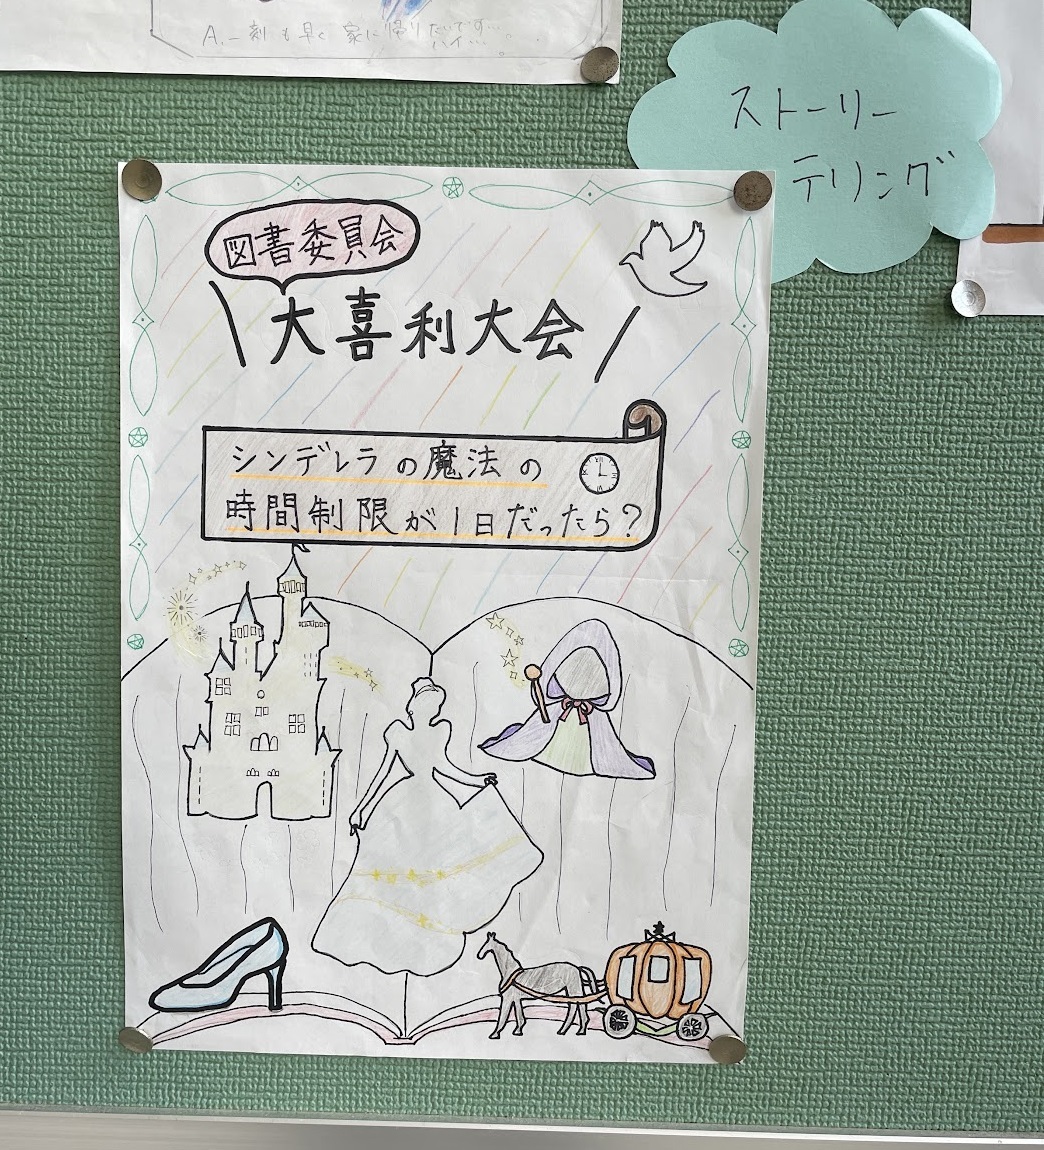 A.一刻も早く家に帰りたいです…
ハイ…。
ストーリー
テリング
図書委員会
大喜利大会
シンデレラの魔法の
時間制限が1日だったら?